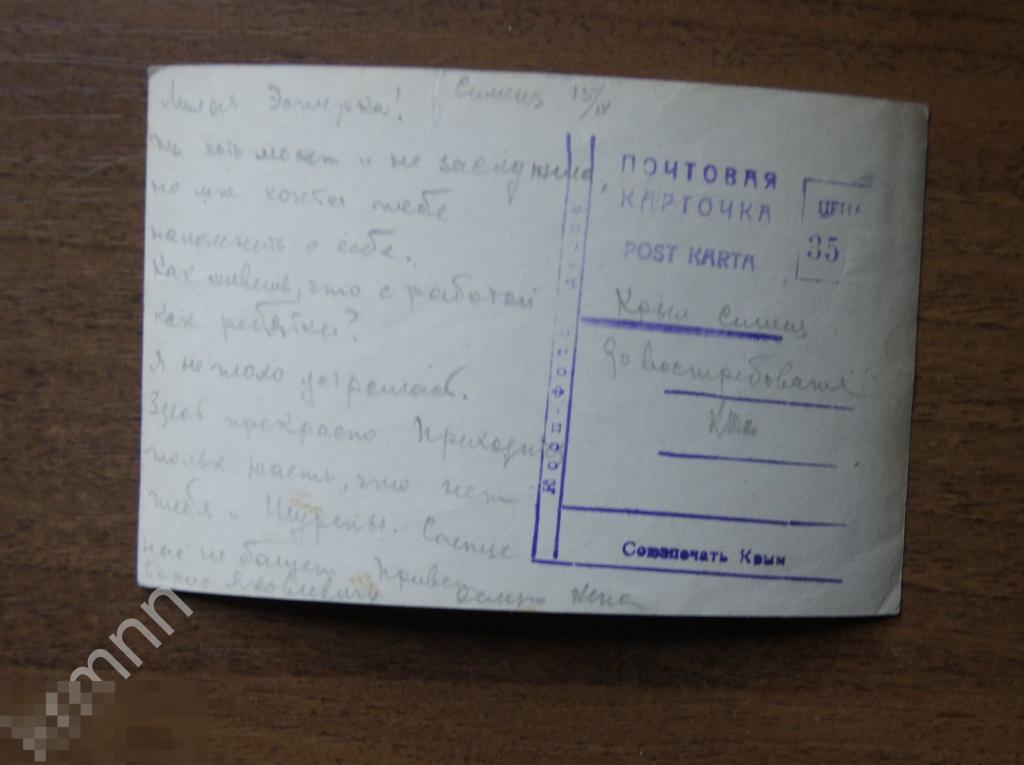 Милая Эстерка! Симеиз 15/IX
ты хоть может и не заслужила,
но мне хочется тебе
напомнить о себе.
Как живешь, что с работой
Как ребятки?
Я неплохо устроилась.
Здесь прекрасно
только жаль, что нет
тебя и Шуреньки. Солнце
нас не балует Привет
Яковлевичу
ПОЧТОВАЯ
КАРТОЧКА
POST KARTA
ЦЕНА
35
Крым Симеиз
До востребования
Кооп-Фото
Союзпечать Крым
mnn